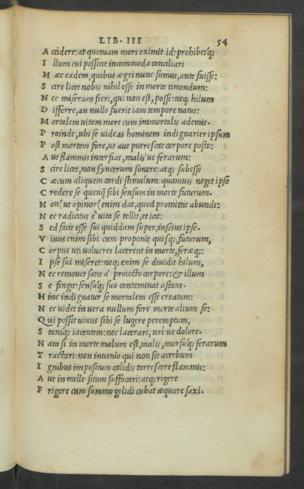 LIB. III 54
A ccidere: at quoniam mors eximit id: prohibetq;
I llum cui possint incommoda conciliari
H æc eadem, quibus ægri nunc sumus, ante fuisse:
S cire licet nobis nihil esse in morte timendum:
N ec miserum fieri, qui non est, posse: neq; hilum
D ifferre, an nullo fuerit iam tempore natus:
M ortalem uitam mors cum immortalis ademit.
P roinde, ubi se uideas hominem indignarier ipsum
P ost mortem fore, ut aut putrescat corpore posto:
A ut flammis interfiat, malis ue ferarum:
S cire licet, non syncerum sonere: atq; subesse
C æcum aliquem cordi stimulum: quamuis neget ipse
C redere se quenq̃ sibi sensum in morte futurum.
N on (ut opinor) enim dat, quod promittit abunde:
N ec radicitus è uita se tollit, et icit:
S ed facit esse sui quiddam super, inscius ipse.
V iuus enim sibi cum proponit quisq;, futurum,
C orpus uti uolucres lacerent in morte, feræq;:
I pse sui miseret: neq; enim se diuidit hilum,
N ec remouet satis à proiecto corpore: & illum
S e fingit: sensuq; suo contaminat astans.
H inc indignatur se mortalem esse creatum:
N ec uidet in uera nullum fore morte alium se:
Q ui possit uiuus sibi se lugere peremptum,
S tansq; iacentem: nec lacerari, uri ue dolore.
N am si in morte malum est, malis, morsuq; ferarum
T ractari: non inuenio qui non sit acerbum
I gnibus impositum calidis torrescere flammis:
A ut in melle situm suffocari: atq; rigere
F rigore cum summo gelidi cubat æquore saxi.